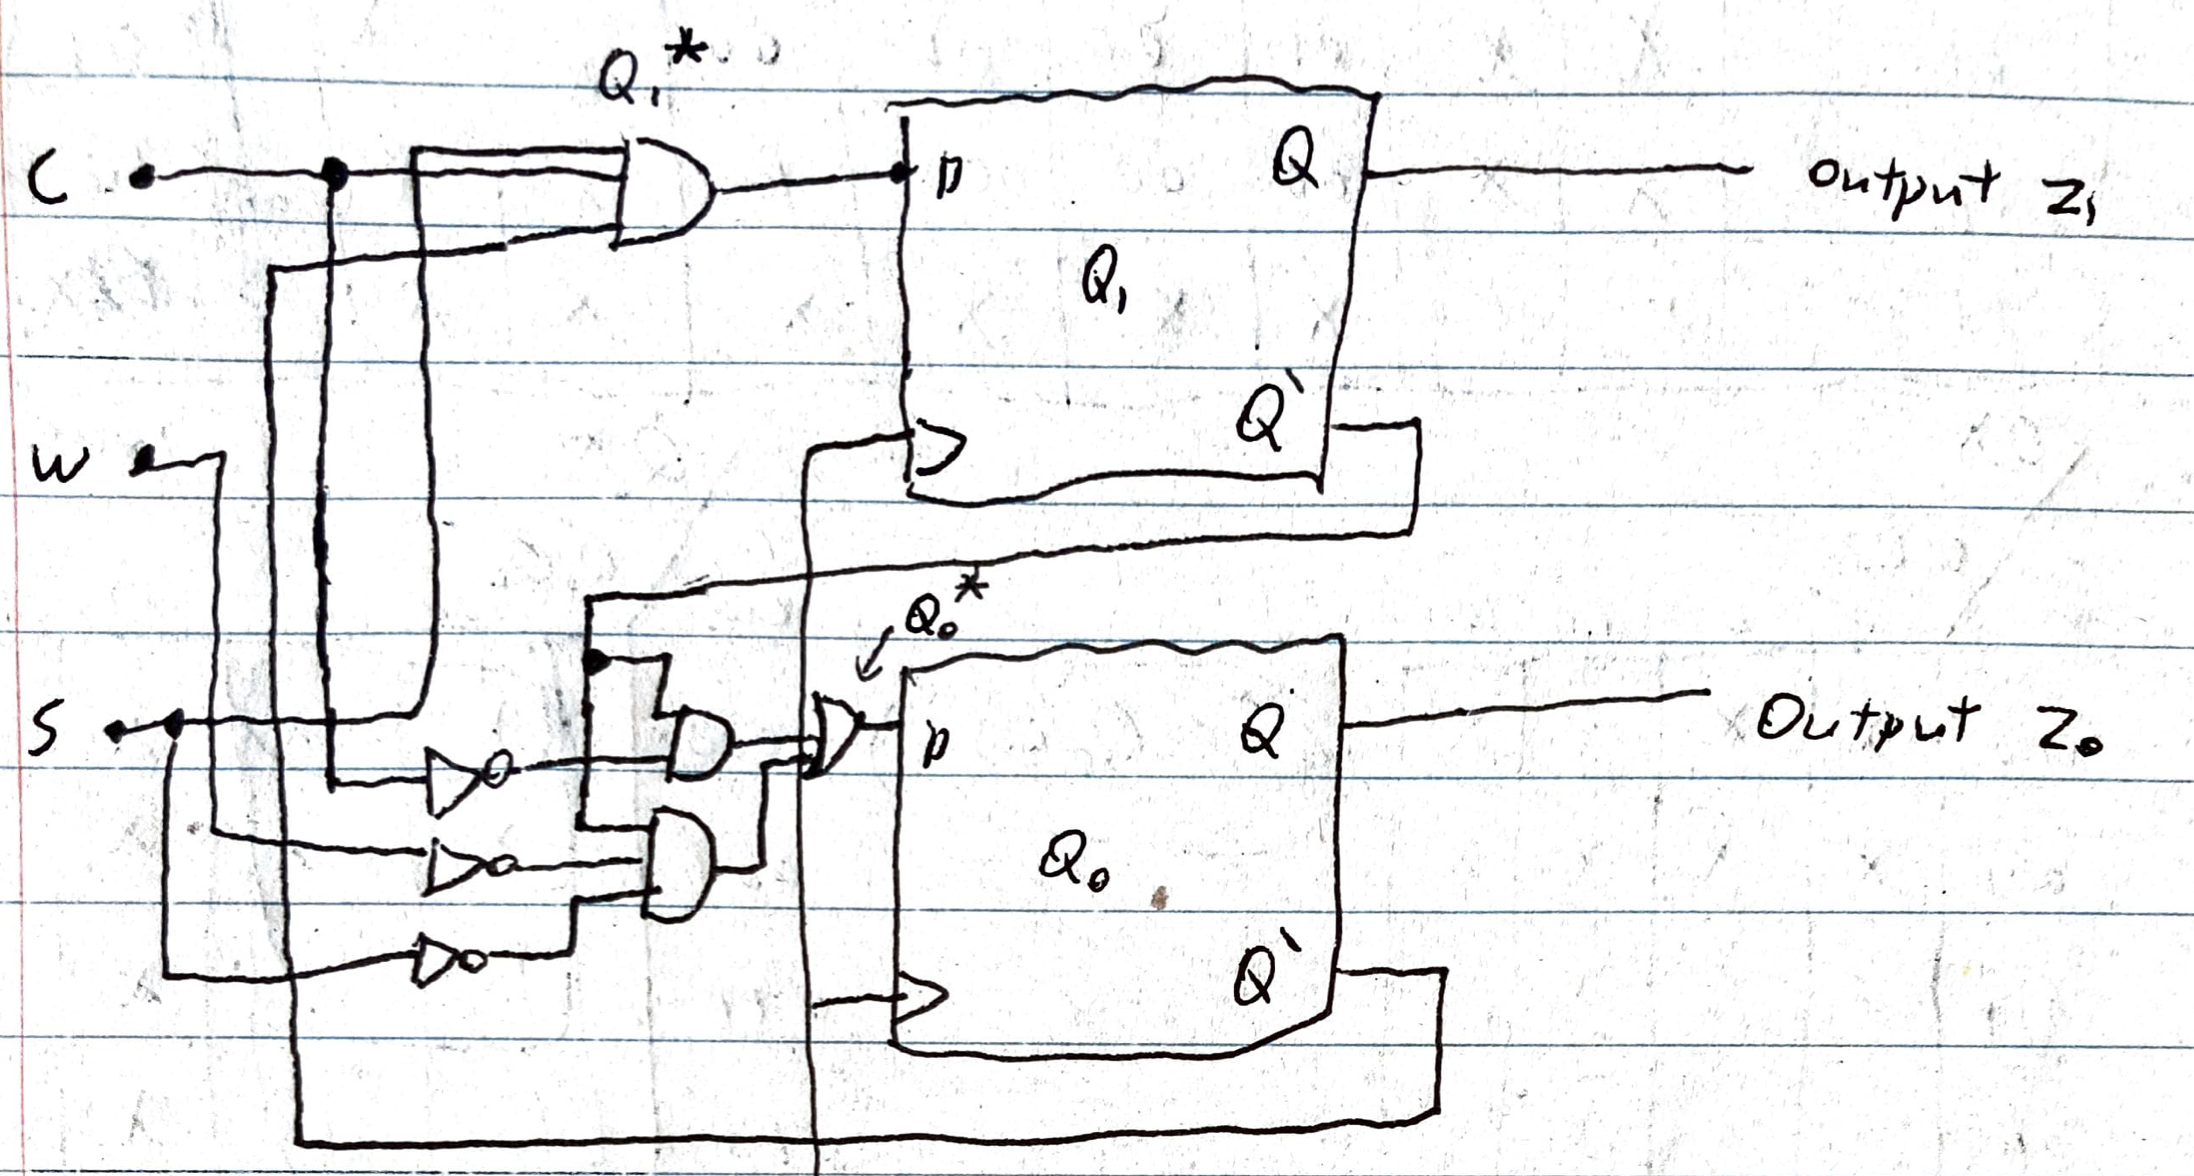 Q₁*
C D Q Output Z₁
Q₁
W Q'
Q₀*
S D Q Output Z₀
Q₀
Q'